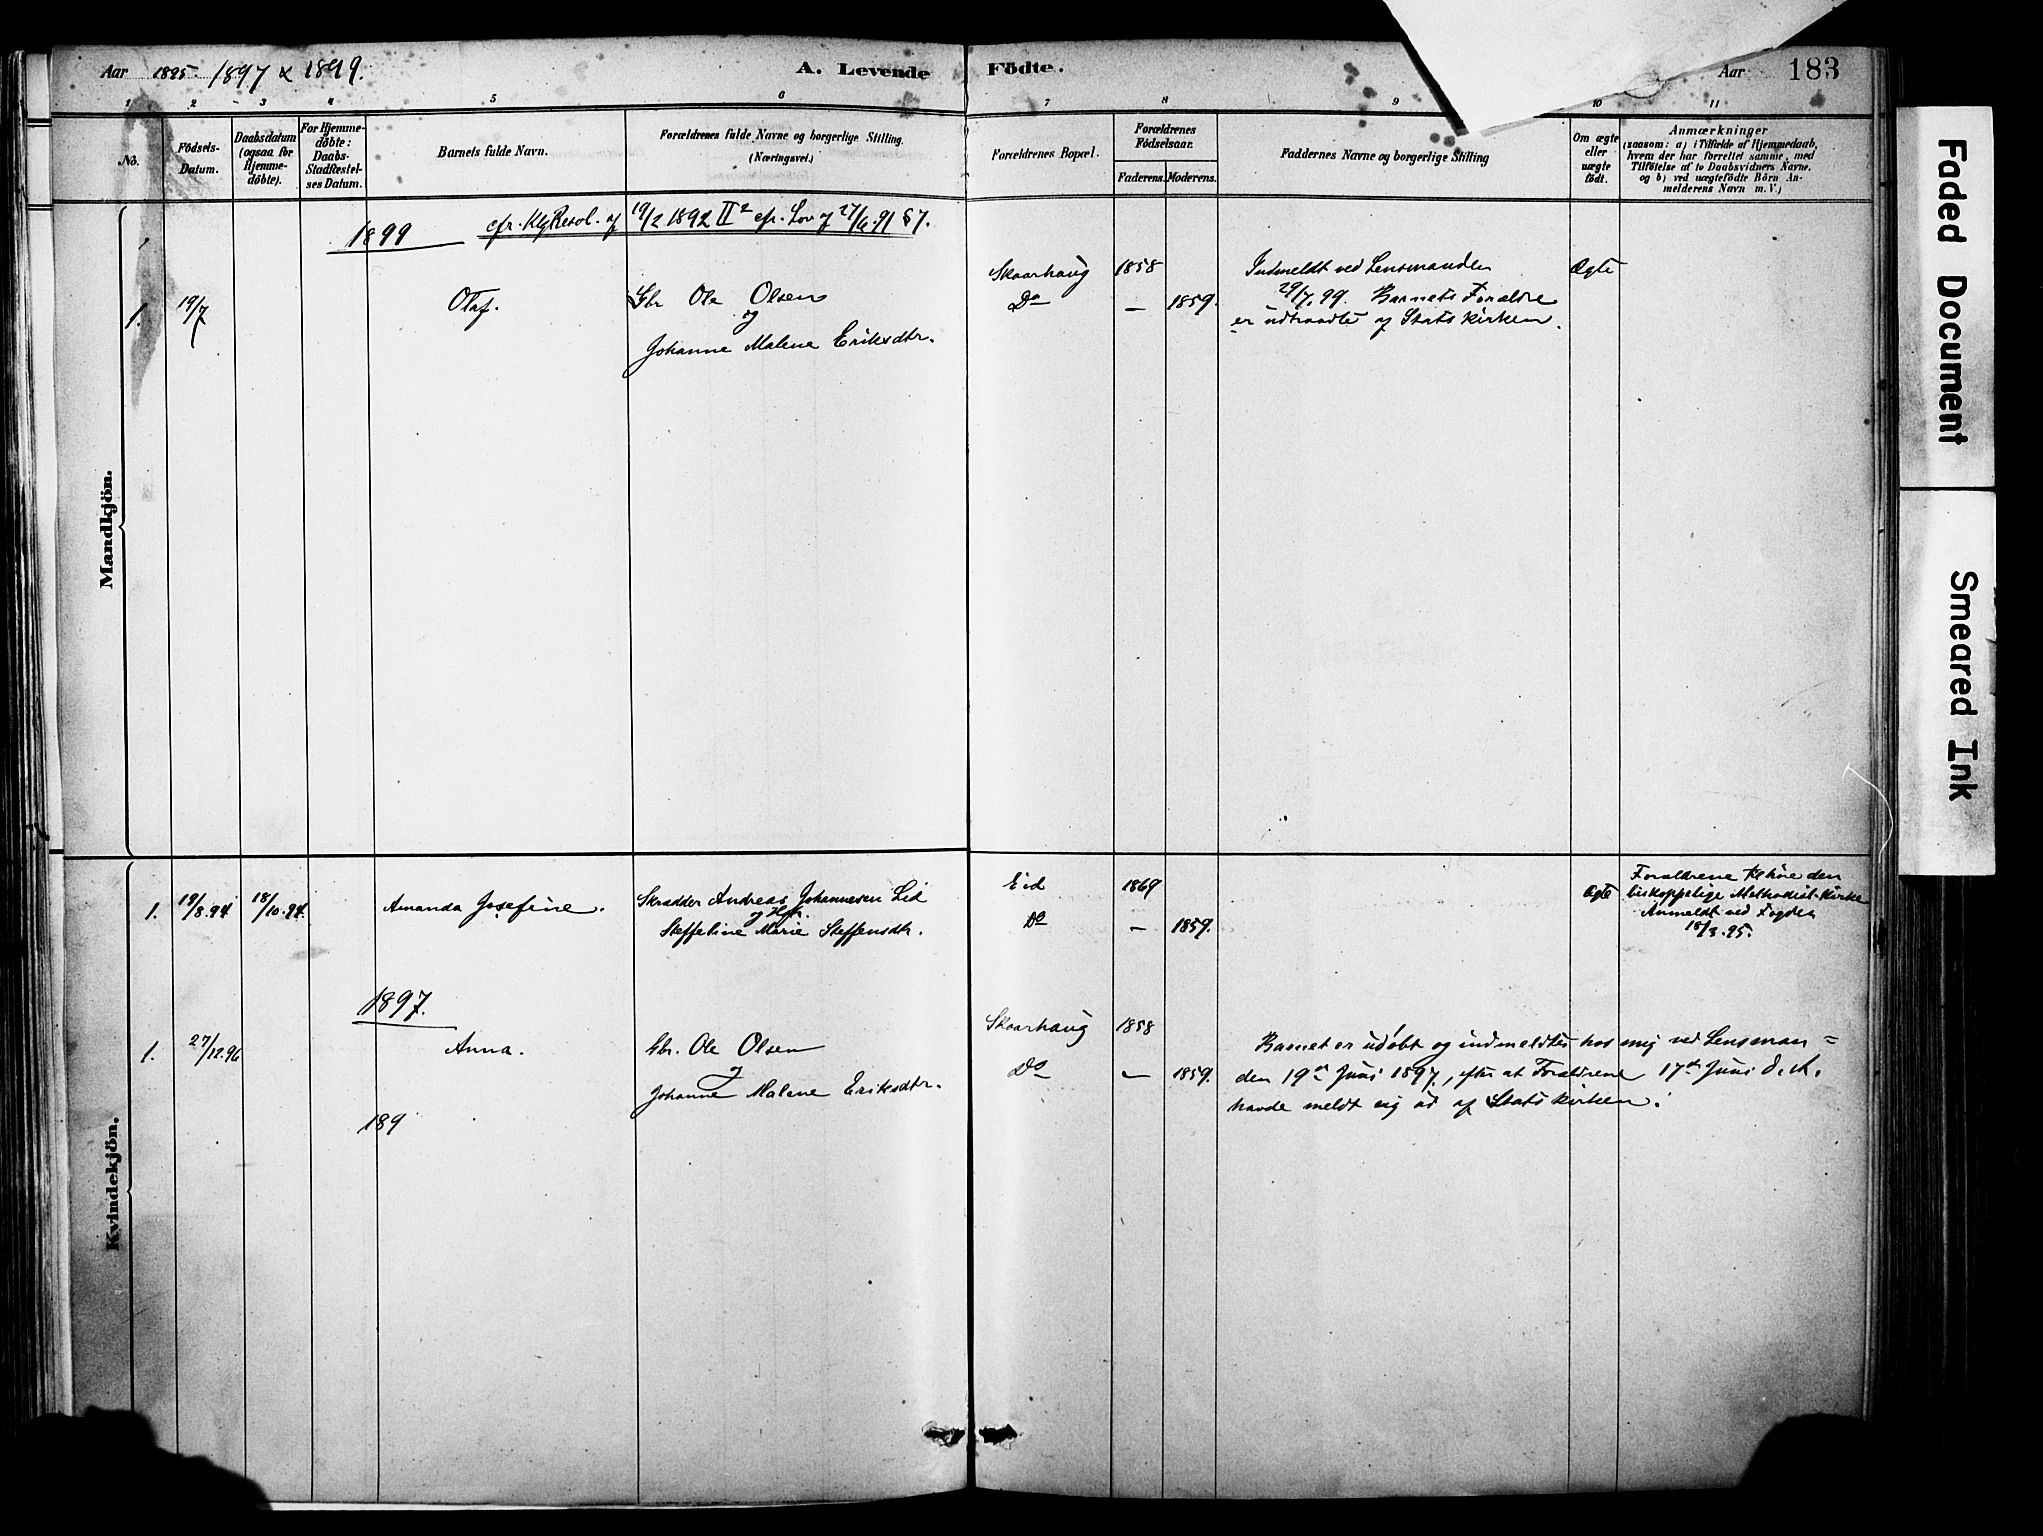 Aar 1895. 1897 & 1899. A. Levende Födte. Aar 183
1 2 3 4 5 6 7 8 9 10 11
No.
Födsels-
Datum.
Daabsdatum
(ogsaa for
Hjemme-
döbte).
For Hjemme-
döbte:
Daabs-
Stadfæstel-
ses Datum.
Barnets fulde Navn.
Forældrenes fulde Navne og borgerlige Stilling.
(Næringsvei.)
Forældrenes Bopæl.
Forældrenes
Födselsaar.
Faderens. Moderens.
Faddernes Navne og borgerlige Stilling
Om ægte
eller
uægte
födt.
Anmærkninger
(saasom: a) i Tilfælde af Hjemmedaab,
hvem der har forrettet samme, med
Tilföielse af to Daabsvidners Navne,
og b) ved uægtefödte Börn An-
melderens Navn m. V.)
Mandkjön.
1899 cfr. Kg Resol. af 19/2 1892 II 2 cfr. Lov af 27/6 91 § 7.
1. 19/7 Olaf. Gbr Ole Olsen
og
Johanne Malene Eriksdtr.
Skaarhaug 1858
Do — 1859.
Indmeldt ved Lensmanden
29/7.99. Barnets Forældre
er udtraadte af Statskirken.
Ægte
Kvindekjön.
1. 19/8.94 18/10.94. Amanda Josefine. Skrædder Andreas Johannesen Eid
og Hstr.
Steffeline Marie Steffensdtr.
Eid 1869
Do — 1859.
Ægte
Forældrene tilhøre den
biskoppelige Methodist-Kirke
Anmeldt ved Fogden
18/3.95.
1897.
1. 27/12.96 Anna. Gbr. Ole Olsen
og
Johanne Malene Eriksdtr.
Skaarhaug 1858
Do — 1859.
Barnet er udøbt og indmeldtes hos mig ved Lensman=
den 19de Juni 1897, efter at Forældrene 17de Juni d. A.
havde meldt sig ud af Statskirken.
189
Faded Document
Smeared Ink